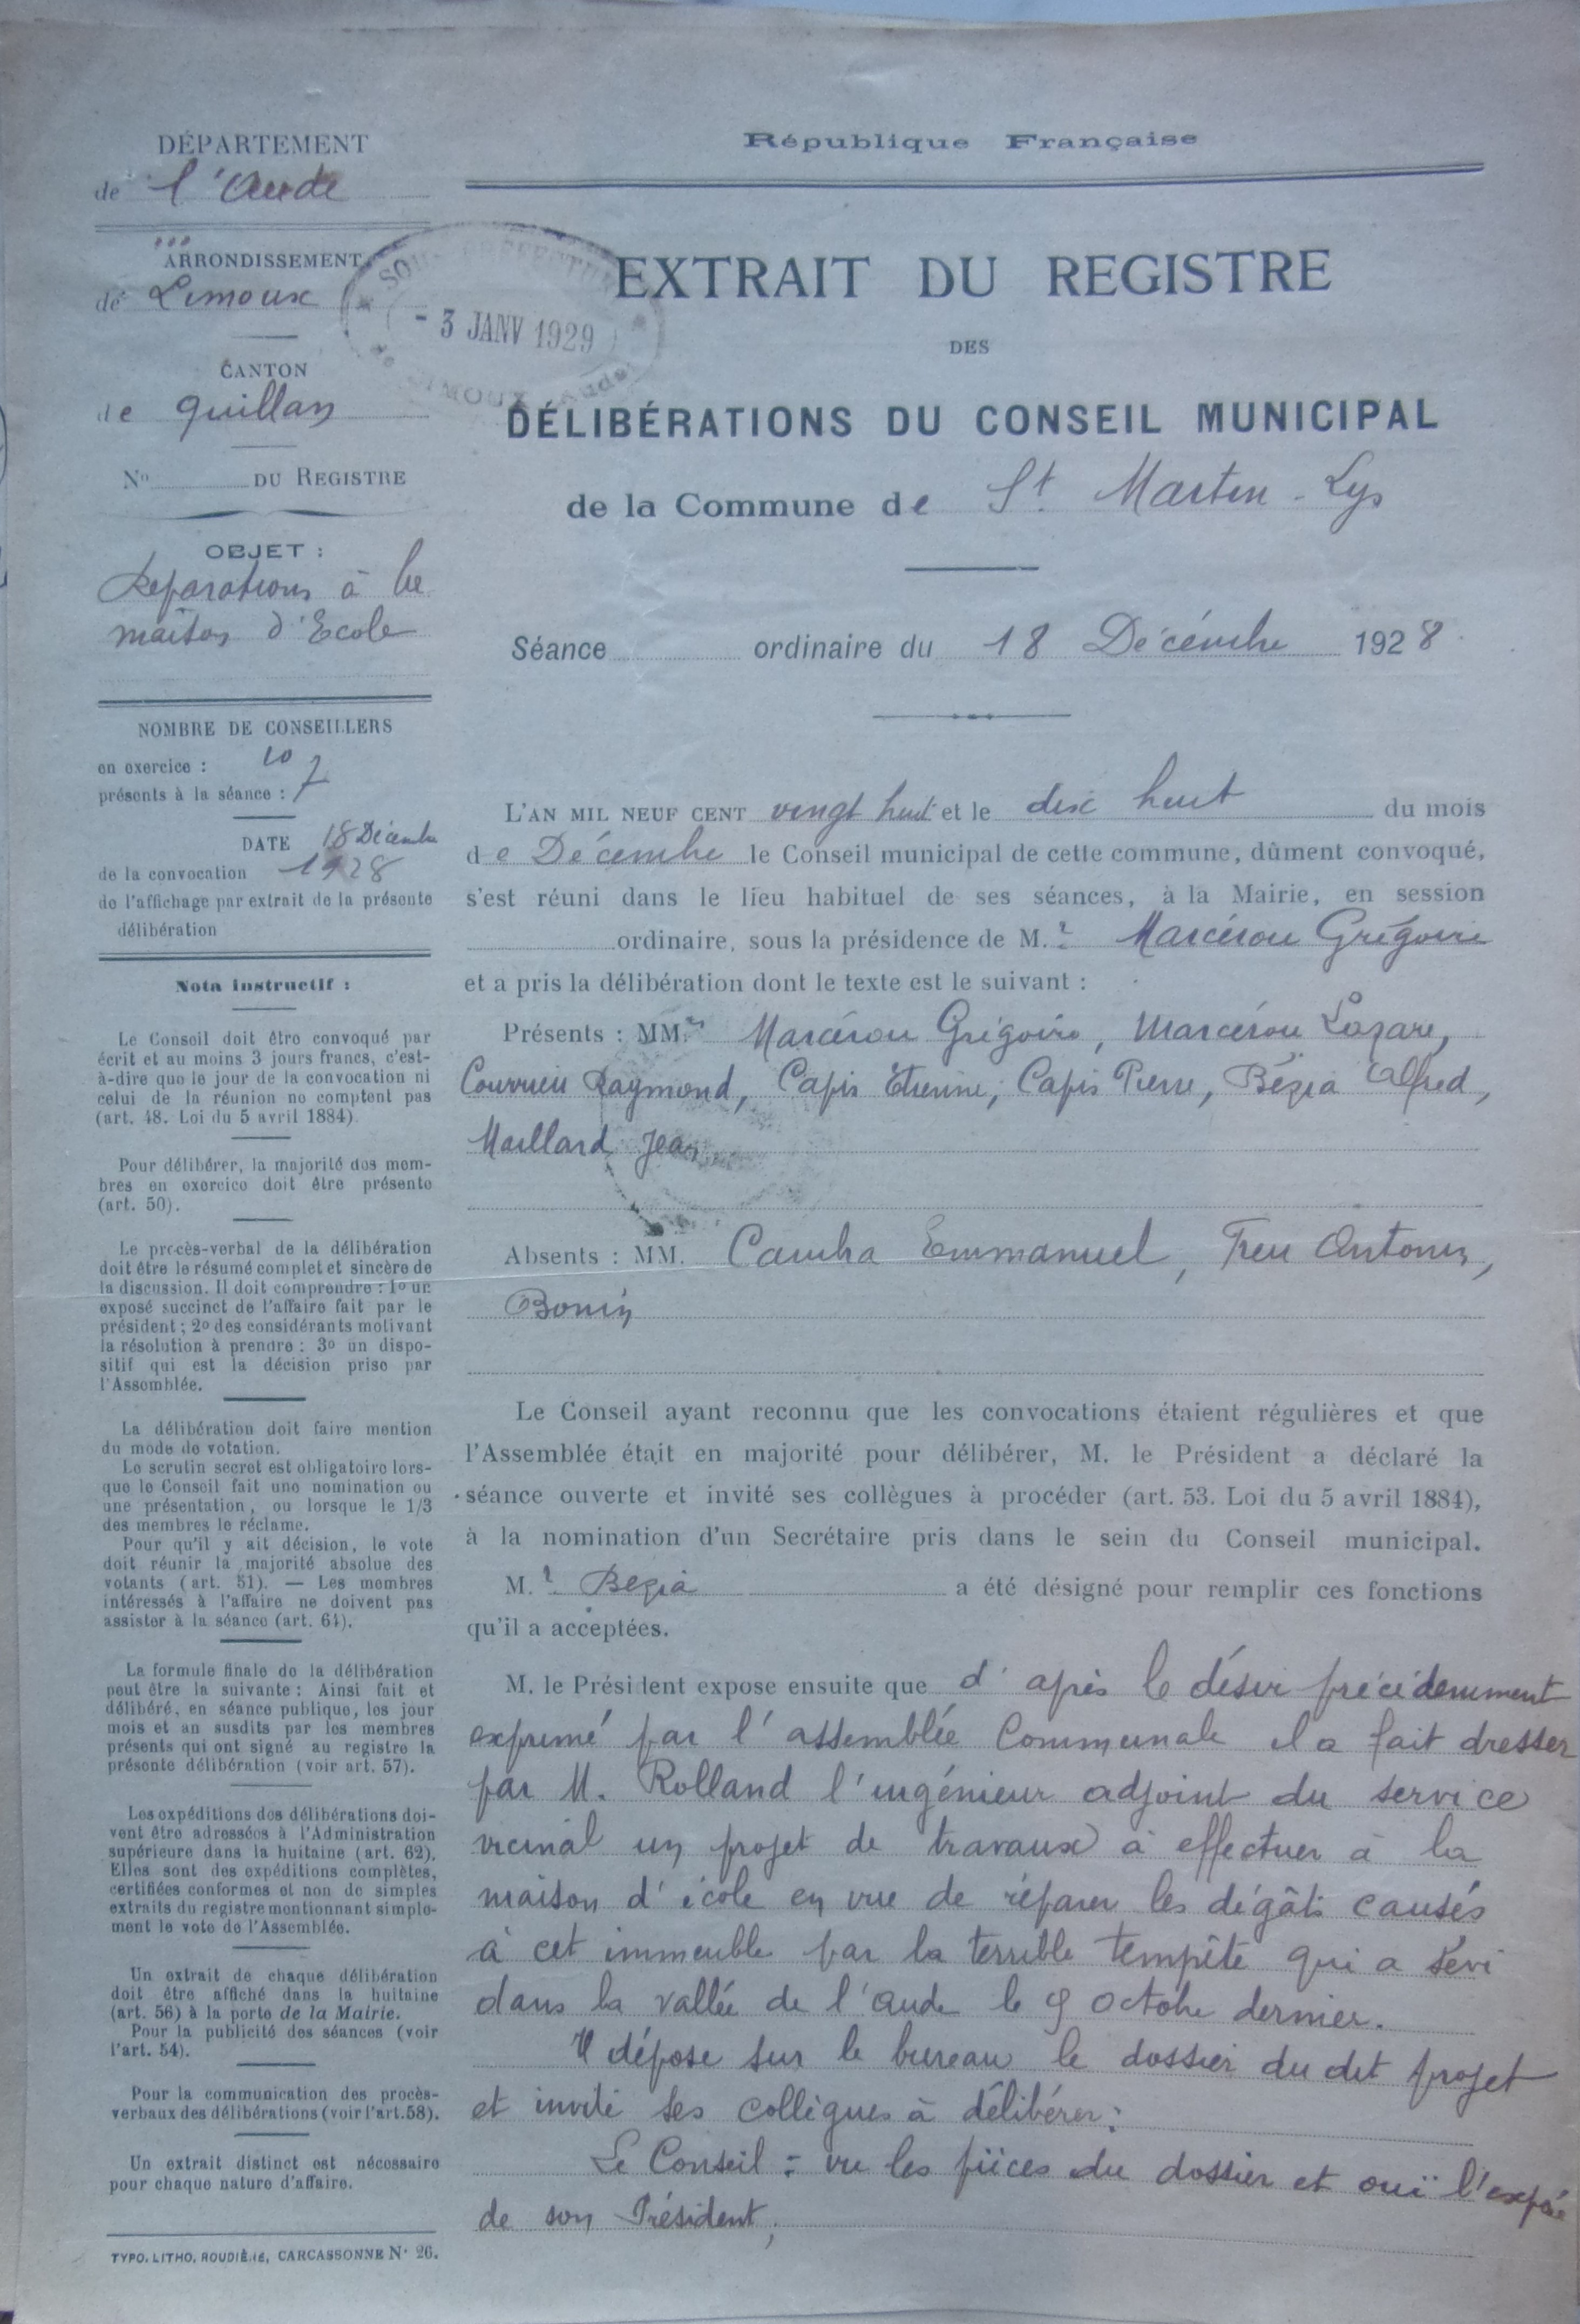 DÉPARTEMENT
de l'Aude
ARRONDISSEMENT
de Limoux
CANTON
de Quillan
No DU REGISTRE
OBJET :
Réparations à la
maison d'Ecole
NOMBRE DE CONSEILLERS
en exercice : 10
présents à la séance : 7
DATE 18 Décembre
de la convocation 1928
de l'affichage par extrait de la présente
délibération
Nota instructif :
Le Conseil doit être convoqué par
écrit et au moins 3 jours francs, c'est-
à-dire que le jour de la convocation ni
celui de la réunion ne comptent pas
(art. 48. Loi du 5 avril 1884)
Pour délibérer, la majorité des mem-
bres en exercice doit être présente
(art. 50).
Le procès-verbal de la délibération
doit être le résumé complet et sincère de
la discussion. Il doit comprendre : 1o un
exposé succinct de l'affaire fait par le
président ; 2o des considérants motivant
la résolution à prendre : 3o un dispo-
sitif qui est la décision prise par
l'Assemblée.
La délibération doit faire mention
du mode de votation.
Le scrutin secret est obligatoire lors-
que le Conseil fait une nomination ou
une présentation, ou lorsque le 1/3
des membres le réclame.
Pour qu'il y ait décision, le vote
doit réunir la majorité absolue des
votants (art. 51). — Les membres
intéressés à l'affaire ne doivent pas
assister à la séance (art. 64).
La formule finale de la délibération
peut être la suivante : Ainsi fait et
délibéré, en séance publique, les jour
mois et an susdits par les membres
présents qui ont signé au registre la
présente délibération (voir art. 57).
Les expéditions des délibérations doi-
vent être adressées à l'Administration
supérieure dans la huitaine (art. 62).
Elles sont des expéditions complètes,
certifiées conformes et non de simples
extraits du registre mentionnant simple-
ment le vote de l'Assemblée.
Un extrait de chaque délibération
doit être affiché dans la huitaine
(art. 56) à la porte de la Mairie.
Pour la publicité des séances (voir
l'art. 54).
Pour la communication des procès-
verbaux des délibérations (voir l'art. 58).
Un extrait distinct est nécessaire
pour chaque nature d'affaire.
TYPO. LITHO. ROUDIÈRE, CARCASSONNE No 26.
République Française
SOUS PRÉFECTURE
- 3 JANV 1929
de LIMOUX (Aude)
EXTRAIT DU REGISTRE
DES
DÉLIBÉRATIONS DU CONSEIL MUNICIPAL
de la Commune de St Martin-Lys
Séance ordinaire du 18 Décembre 1928
L'AN MIL NEUF CENT vingt huit et le dix huit du mois
de Décembre le Conseil municipal de cette commune, dûment convoqué,
s'est réuni dans le lieu habituel de ses séances, à la Mairie, en session
ordinaire, sous la présidence de M.r Marcérou Grégoire
et a pris la délibération dont le texte est le suivant :
Présents : MM.rs Marcérou Grégoire, Marcérou Lazare,
Raymond, Capis Etienne, Capis Pierre, Bézia Alfred,
Maillard Jean
Absents : MM. Emmanuel, Antonin,
Bonin
Le Conseil ayant reconnu que les convocations étaient régulières et que
l'Assemblée était en majorité pour délibérer, M. le Président a déclaré la
séance ouverte et invité ses collègues à procéder (art. 53. Loi du 5 avril 1884),
à la nomination d'un Secrétaire pris dans le sein du Conseil municipal.
M.r Bezia a été désigné pour remplir ces fonctions
qu'il a acceptées.
M. le Président expose ensuite que d'après le désir précédemment
exprimé par l'assemblée Communale il a fait dresser
par M. Rolland l'ingénieur adjoint du service
vicinal un projet de travaux à effectuer à la
maison d'école en vue de réparer les dégâts causés
à cet immeuble par la terrible tempête qui a sévi
dans la vallée de l'Aude le 9 octobre dernier.
Il dépose sur le bureau le dossier du dit projet
et invite ses collègues à délibérer :
Le Conseil : vu les pièces du dossier et ouï l'exposé
de son Président,